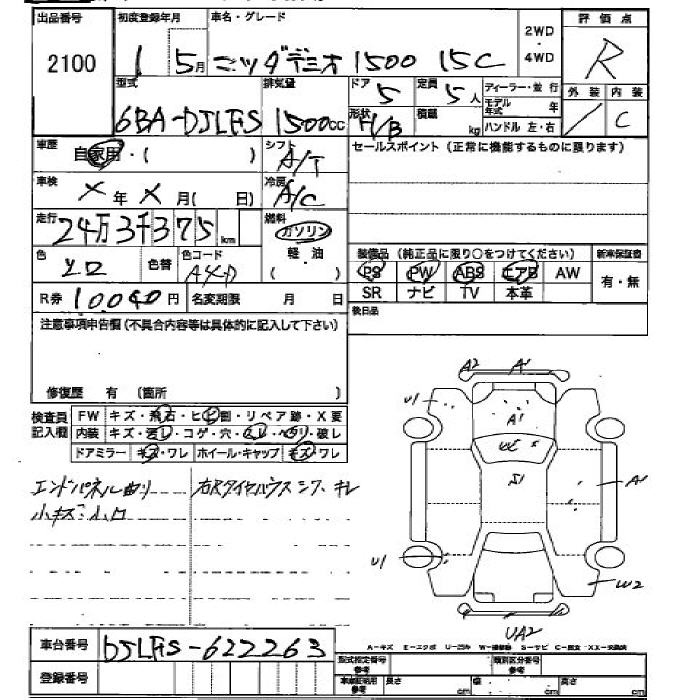 出品番号 初度登録年月 車名・グレード 2WD・4WD 評価点
2100 1 5月 マツダデミオ 1500 15C R
型式 排気量 ドア 定員 ディーラー・並行 外装 内装
6BA-DJLFS 1500cc 5 5人 モデル年式 年 / C
形状 H/B 積載 kg ハンドル 左・右
車歴 自家用・( ) シフト A/T セールスポイント (正常に機能するものに限ります)
車検 ×年×月( 日) 冷房 A/C
走行 24万3千375km 燃料 ガソリン
軽・油
( )
色 シロ 色替 色コード A4D 装備品 (純正品に限り○をつけてください) 新車保証書
PS PW ABS エアB AW 有・無
R券 10040円 名変期限 月 日 SR ナビ TV 本革
注意事項申告欄 (不具合内容等は具体的に記入して下さい) 後日品
修復歴 有 (箇所 )
検査員記入欄 FW キズ・飛石・ヒビ割・リペア跡・X要
内装 キズ・汚レ・コゲ・穴・スレ・ヘタリ・破レ
ドアミラー キズ・ワレ ホイール・キャップ キズ・ワレ
エンドパネル曲り 右Rタイヤハウス シワ、キレ
小キズ 小凹
A2 A1
U1 A1
S
S1 A1
U1 W2
UA2
A-キズ E-エクボ U-凹み W-補修跡 S-サビ C-腐食 XX-交換済
車台番号 DJLFS-622263 型式指定番号 参考 類別区分番号 参考
登録番号 車庫証明用 参考 長さ cm 幅 cm 高さ cm